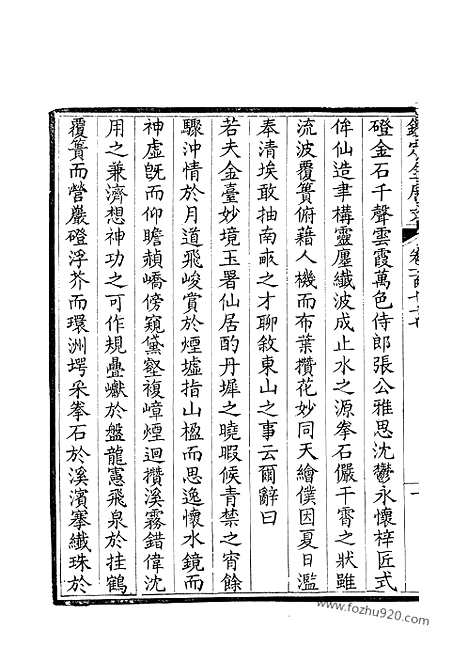 磴金石千聲雲霞萬色侍郎張公雅思沈鬱永懷梓匠式
侔仙造聿構靈廛纖波成止水之源拳石儼干霄之狀雖
流波覆簣俯藉人機而布葉攢花妙同天繪僕因夏日濫
奉清埃敢抽南畝之才聊敘東山之事云爾辭曰
若夫金臺妙境玉署仙居酌丹墀之曉暇候青禁之宵餘
驟沖情於月道飛峻賞於煙墟指山楹而思逸懷水鏡而
神虛旣而仰瞻赬嶠傍窺黛壑複嶂煙迴攢溪霧錯偉沈
用之兼濟想神功之可作規疊巘於盤龍憲飛泉於挂鶴
覆簣而營巖磴浮芥而環洲堮采拳石於溪濱搴纖珠於
www.fozhu920.com